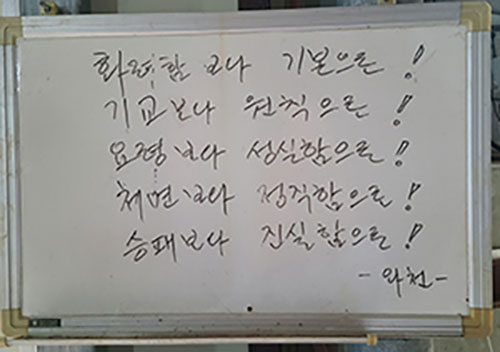 화려함 보다 기본으로!
기교보다 원칙으로!
요령보다 성실함으로!
체면보다 정직함으로!
승패보다 진실함으로!
-와천-